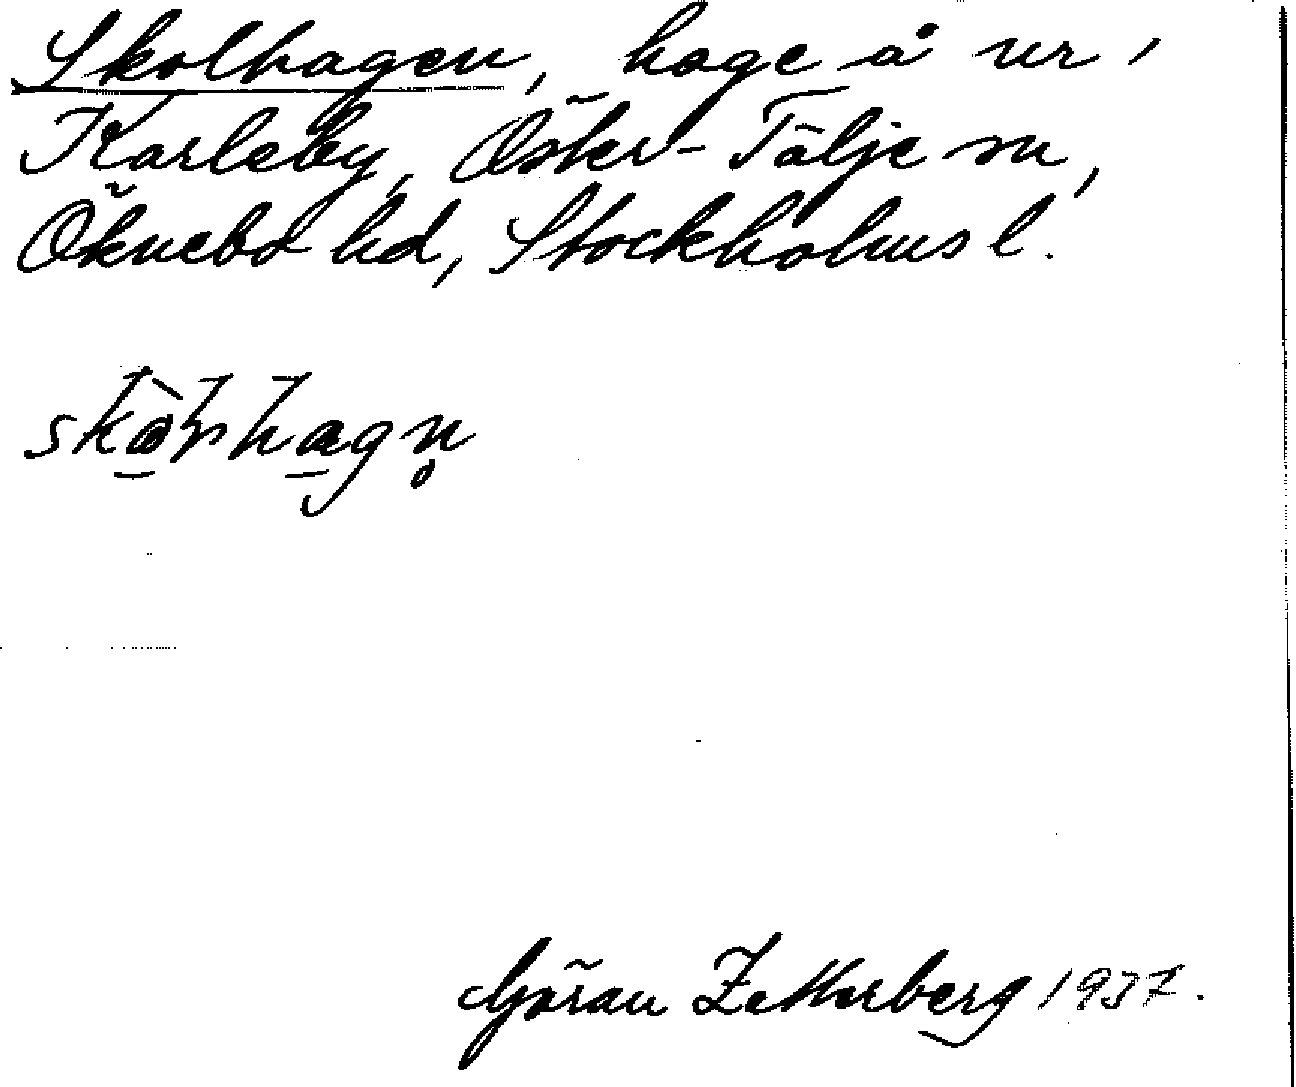 Skolhagen, hage å ur,
Karleby, Öster-Tälje sn,
Öknebo hd, Stockholms l.
Göran Zetterberg 1937.